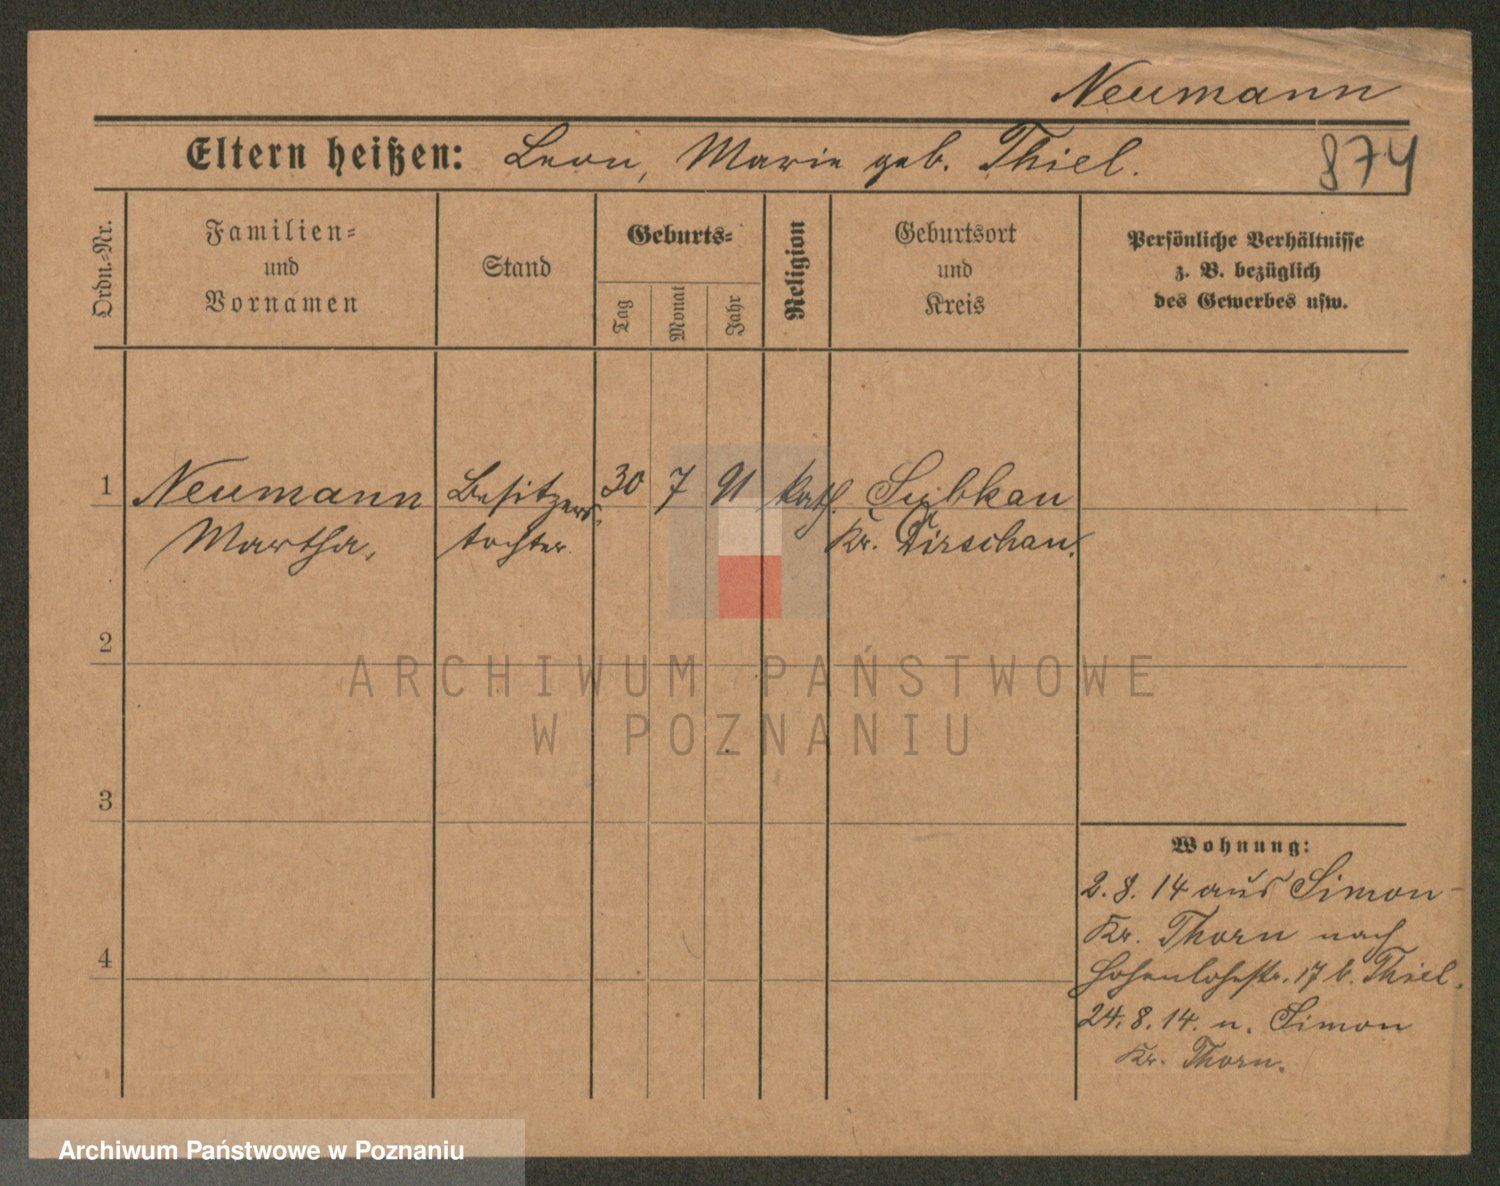 Neumann
Eltern heißen: Leon, Marie geb. Thiel.
874
Ordn.-Nr.
Familien-
und
Vornamen
Stand
Geburts-
Tag
Monat
Jahr
Religion
Geburtsort
und
Kreis
Persönliche Verhältnisse
z. B. bezüglich
des Gewerbes usw.
1 Neumann Besitzers- 30 7 91 kath. Subkau
Martha, tochter. Kr. Dirschau.
2
3
4
Wohnung:
2.8.14 aus Simon-
Kr. Thorn nach
Hohenlohestr. 17 b. Thiel.
24.8.14. n. Simon
Kr. Thorn.
ARCHIWUM PAŃSTWOWE
W POZNANIU
Archiwum Państwowe w Poznaniu